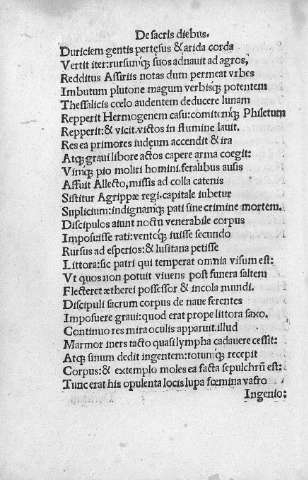 De sacris diebus.
Duriciem gentis pertęsus & arida corda
Vertit iter: rursumq; suos adnauit ad agros,
Redditus Assiriis notas dum permeat vrbes
Imbutum plutone magum verbisq; potentem
Thessalicis cœlo audentem deducere lunam
Repperit Hermogenem casu: comitemq; Philetum
Repperit: & vicit. victos in flumine lauit.
Res ea primores iudęum accendit & ira
Atq; graui libore actos capere arma coegit:
Vimq; pio moliri homini. feralibus ausis
Affuit Allecto, missis ad colla catenis
Sistitur Agrippæ regi. capitale iubetur
Suplicium: indignamq; pati sine crimine mortem.
Discipulos aiunt noctu venerabile corpus
Imposuisse rati: ventoq; iuisse secundo
Rursus ad esperios: & lusitana petisse
Littora: sic patri qui temperat omnia visum est:
Vt quos non potuit viuens post funera saltem
Flecteret ætherei possessor & incola mundi.
Discipuli sacrum corpus de naue ferentes
Imposuere graui: quod erat prope littora saxo.
Continuo res mira oculis apparuit. illud
Marmor iners tacto quasi lympha cadauere cessit:
Atq; sinum dedit ingentem: totumq; recepit
Corpus: & extemplo moles ea facta sepulchrū est:
Tunc erat his opulenta locis lupa fœmina vafro
Ingenio: